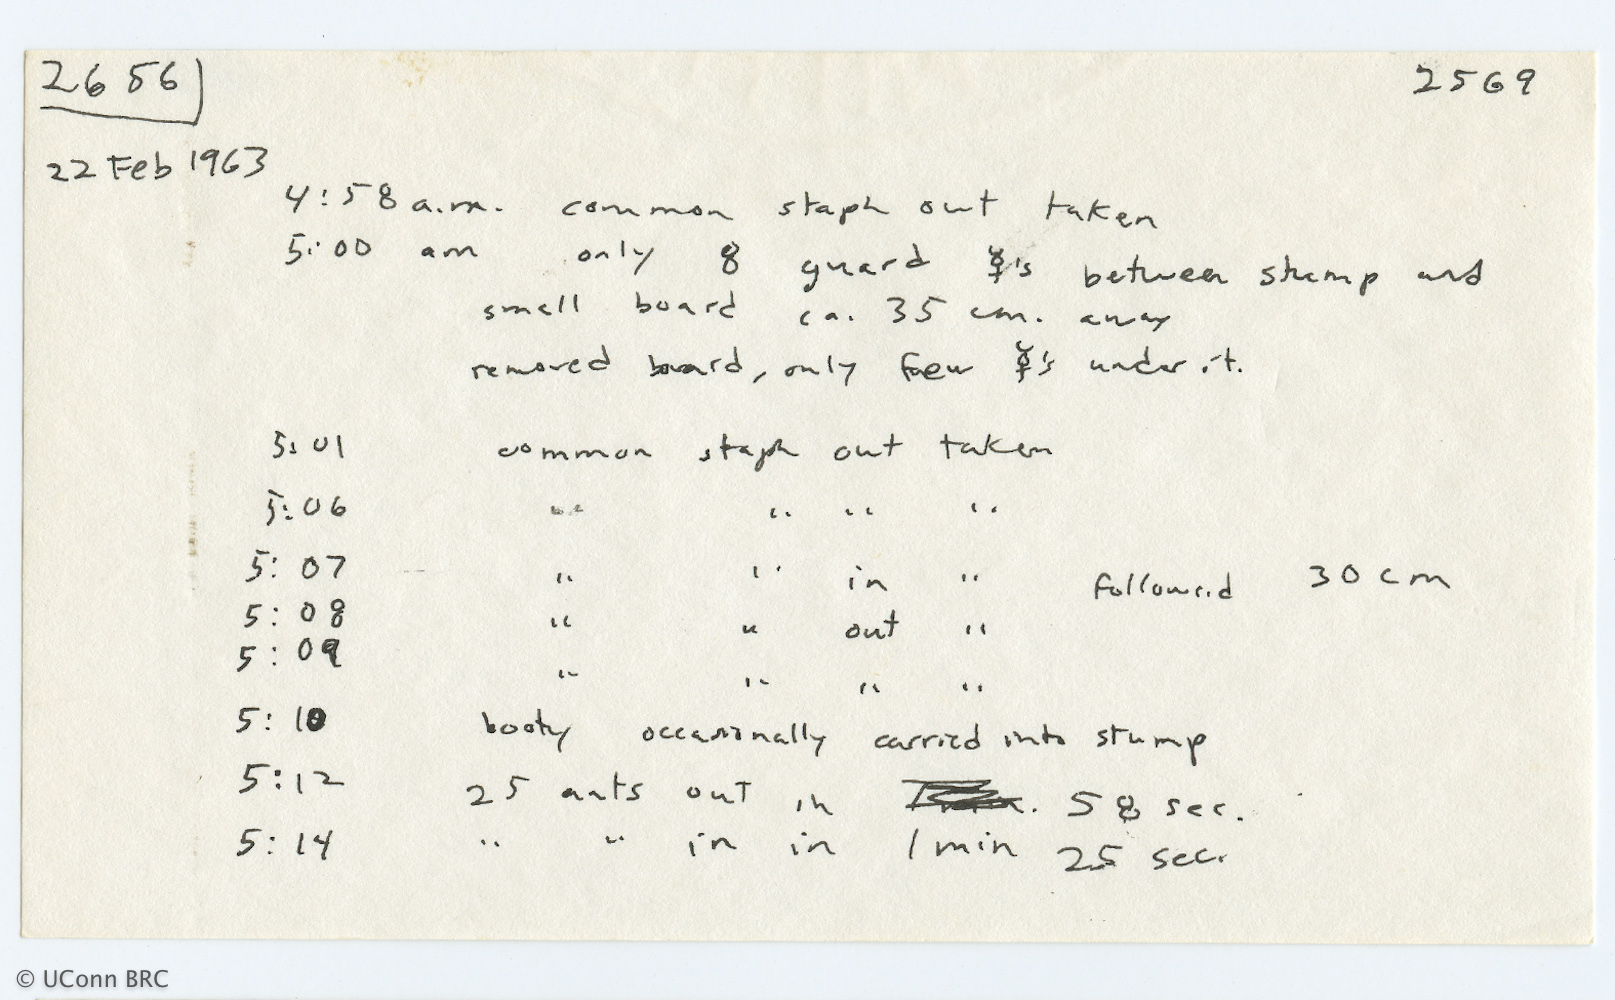 2656 2569
22 Feb 1963
4:58 a.m. common staph out taken
5:00 am only 8 guard ☿'s between stump and
small board ca. 35 cm. away
removed board, only few ☿'s under it.
5:01 common staph out taken
5:06 " " " "
5:07 " " in " followed 30 cm
5:08 " " out "
5:09 " " " "
5:10 booty occasionally carried into stump
5:12 25 ants out in 58 sec.
5:14 " " in in 1 min 25 sec.
© UConn BRC